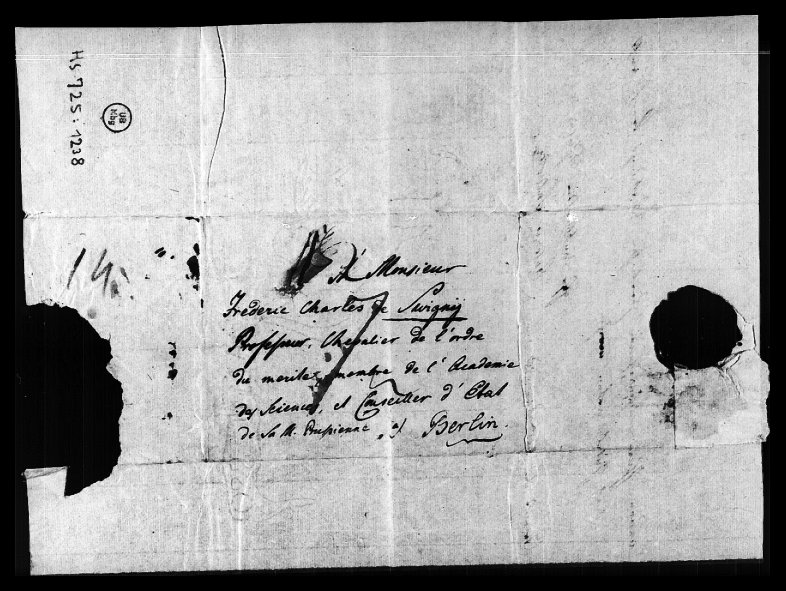 Hs 725:1238
UB
Mbg
14.
A Monsieur
Frederic Charles de Savigny
Professeur, Chevalier de l'ordre
du merite, membre de l'Academie
des Sciences, et Conseiller d'Etat
de Sa M. Prussienne, a/ Berlin.